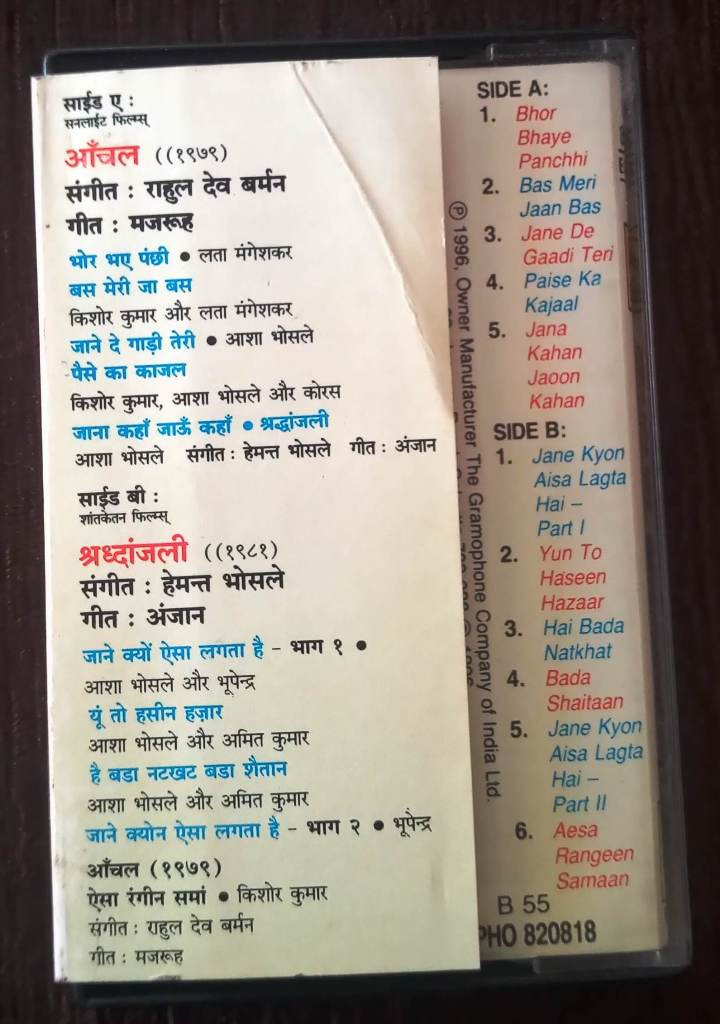 साईड ए :
सनलाईट फिल्म्स्
आँचल ((१९७९)
संगीत : राहुल देव बर्मन
गीत : मजरूह
भोर भए पंछी ● लता मंगेशकर
बस मेरी जा बस
किशोर कुमार और लता मंगेशकर
जाने दे गाड़ी तेरी ● आशा भोसले
पैसे का काजल
किशोर कुमार, आशा भोसले और कोरस
जाना कहाँ जाऊँ कहाँ ● श्रद्धांजली
आशा भोसले संगीत : हेमन्त भोसले गीत : अंजान
साईड बी :
शांतकेतन फिल्म्स्
श्रध्दांजली ((१९८१)
संगीत : हेमन्त भोसले
गीत : अंजान
जाने क्यों ऐसा लगता है – भाग १ ●
आशा भोसले और भूपेन्द्र
यूं तो हसीन हज़ार
आशा भोसले और अमित कुमार
है बडा नटखट बडा शैतान
आशा भोसले और अमित कुमार
जाने क्योन ऐसा लगता है – भाग २ ● भूपेन्द्र
आँचल (१९७९)
ऐसा रंगीन समां ● किशोर कुमार
संगीत : राहुल देव बर्मन
गीत : मजरूह
℗ 1996, Owner Manufacturer The Gramophone Company of India Ltd.
SIDE A:
1. Bhor
Bhaye
Panchhi
2. Bas Meri
Jaan Bas
3. Jane De
Gaadi Teri
4. Paise Ka
Kajaal
5. Jana
Kahan
Jaoon
Kahan
SIDE B:
1. Jane Kyon
Aisa Lagta
Hai –
Part I
2. Yun To
Haseen
Hazaar
3. Hai Bada
Natkhat
4. Bada
Shaitaan
5. Jane Kyon
Aisa Lagta
Hai –
Part II
6. Aesa
Rangeen
Samaan
B 55
PHO 820818